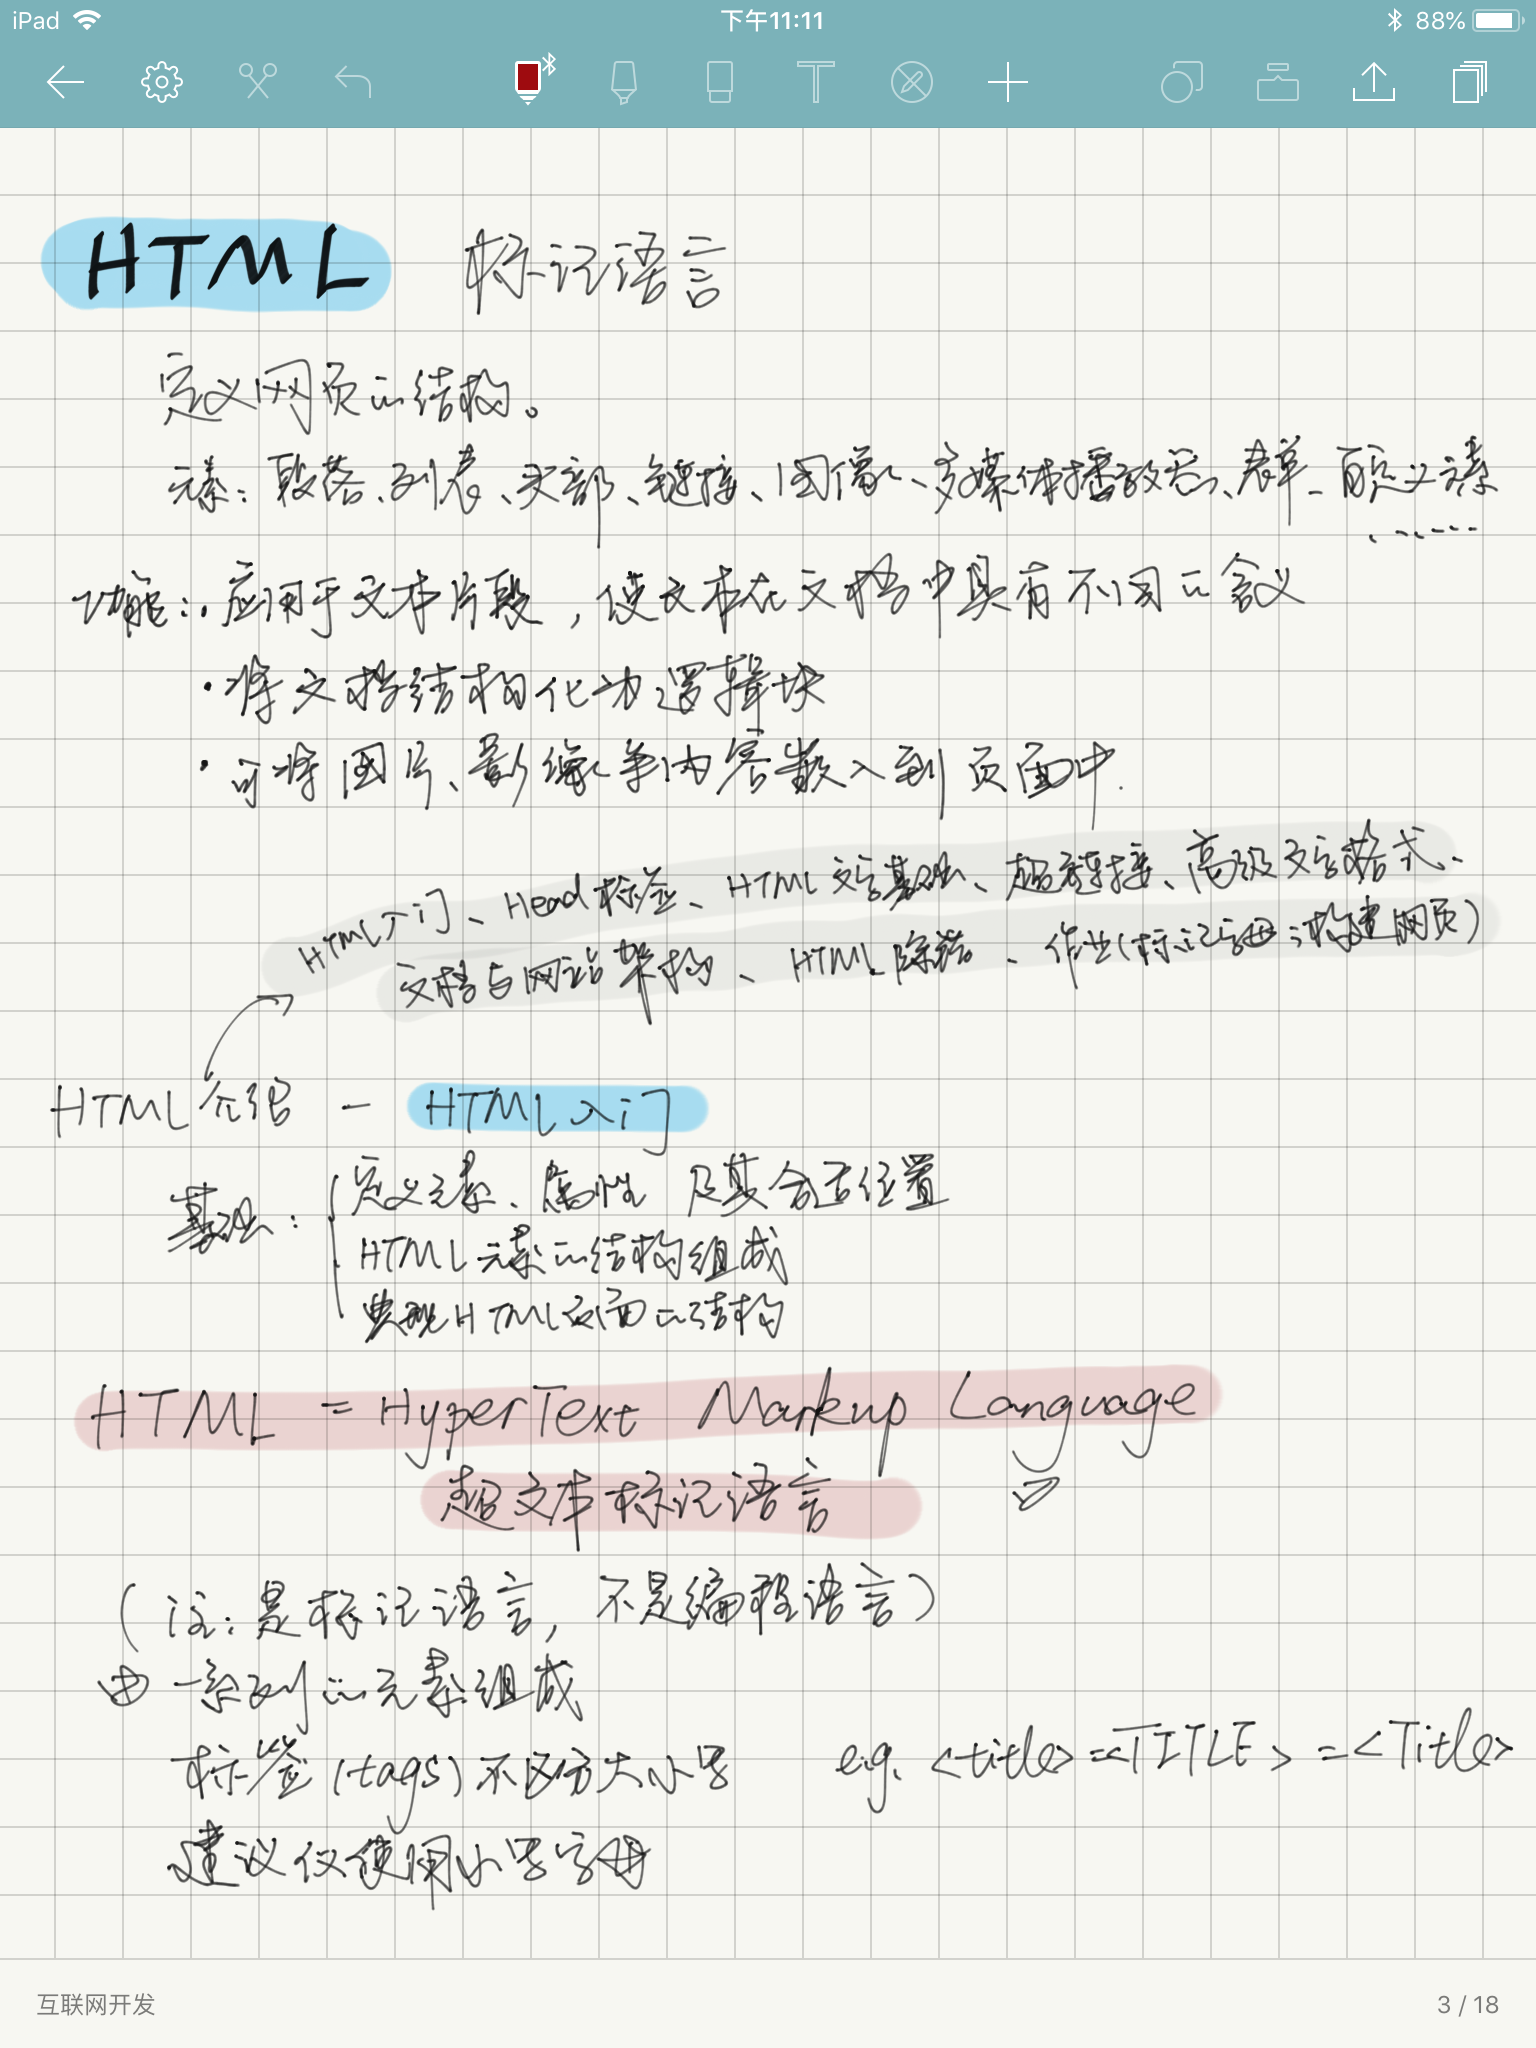 iPad 下午11:11 88%
HTML 标记语言
定义网页的结构。
元素：段落、列表、头部、链接、图像、多媒体播放器、表单、自定义元素
......
功能：· 应用于文本片段，使文本在文档中具有不同的含义
· 将文档结构化为逻辑块
· 可将图片、影像等内容嵌入到页面中.
HTML入门、Head标签、HTML文字基础、超链接、高级文字格式、
文档与网站架构、HTML除错、作业(标记字母;构建网页)
HTML介绍 - HTML入门
基础：定义元素、属性 及其合适位置
HTML元素的结构组成
典型HTML页面的结构
HTML = HyperText Markup Language
超文本标记语言
(注：是标记语言，不是编程语言)
由一系列的元素组成
标签(tags)不区分大小写 e.g. <title>=<TITLE>=<Title>
建议仅使用小写字母
互联网开发 3 / 18